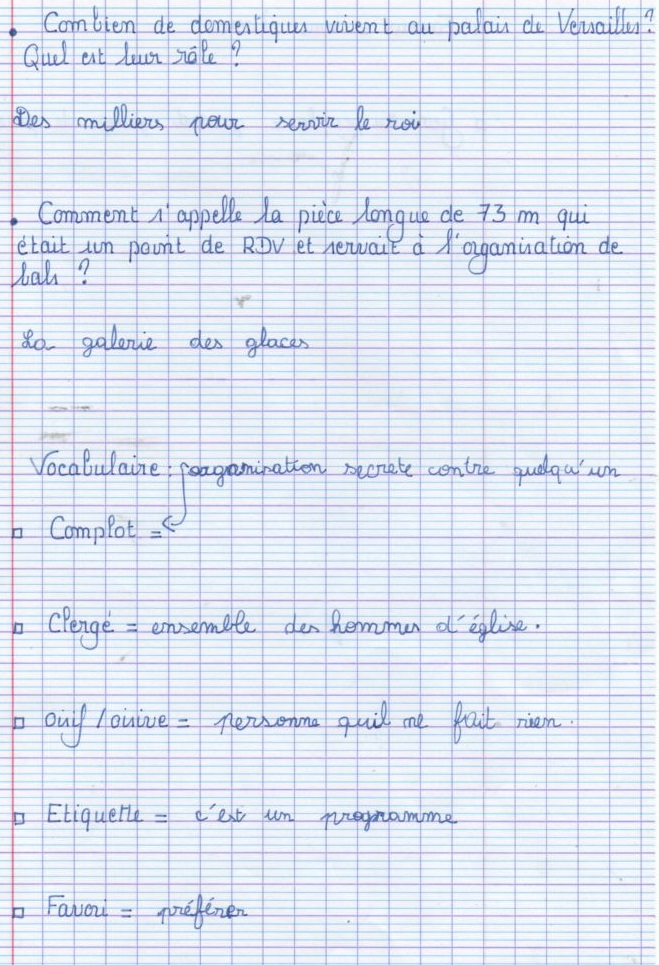 • Combien de domestiques vivent au palais de Versailles ?
Quel est leur rôle ?
Des milliers pour servir le roi
• Comment s'appelle la pièce longue de 73 m qui
était un point de RDV et servait à l'organisation de
bals ?
La galerie des glaces
Vocabulaire : organisation secrete contre quelqu'un
□ Complot =
□ Clergé = ensemble des hommes d'église.
□ Oisif / oisive = personne quil ne fait rien.
□ Etiquette = c'est un programme
□ Favori = préférer